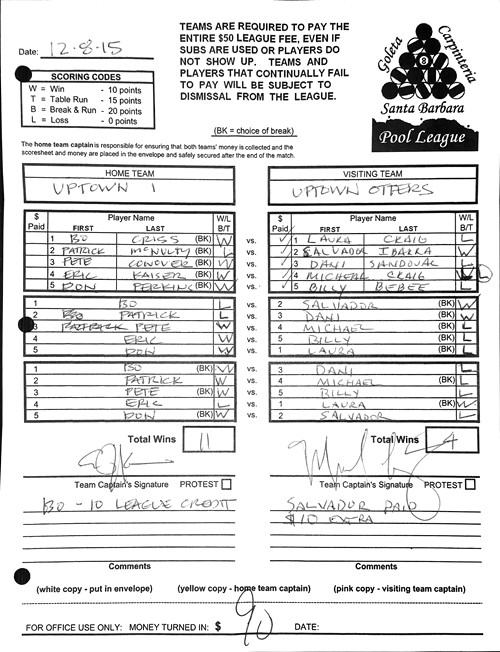 Date: 12-8-15
SCORING CODES
W = Win - 10 points
T = Table Run - 15 points
B = Break & Run - 20 points
L = Loss - 0 points
TEAMS ARE REQUIRED TO PAY THE
ENTIRE $50 LEAGUE FEE, EVEN IF
SUBS ARE USED OR PLAYERS DO
NOT SHOW UP. TEAMS AND
PLAYERS THAT CONTINUALLY FAIL
TO PAY WILL BE SUBJECT TO
DISMISSAL FROM THE LEAGUE.
(BK = choice of break)
Goleta
Carpinteria
8
Santa Barbara
Pool League
The home team captain is responsible for ensuring that both teams' money is collected and the
scoresheet and money are placed in the envelope and safely secured after the end of the match.
HOME TEAM
UPTOWN 1
VISITING TEAM
UPTOWN OTTERS
$ Paid Player Name FIRST LAST W/L B/T
1 BO CRISS (BK) W vs.
2 PATRICK MCNULTY (BK) L vs.
3 PETE CONOVER (BK) W vs.
4 ERIC KAISER (BK) W vs.
5 DON PERKINS (BK) W vs.
$ Paid Player Name FIRST LAST W/L B/T
1 LAURA CRAIG L
2 SALVADOR IBARRA W
3 DANI SANDOVAL L
4 MICHEAL CRAIG L
5 BILLY BEBEE L
1 BO L vs.
2 PATRICK L vs.
3 PETE W vs.
4 ERIC W vs.
5 DON W vs.
2 SALVADOR (BK) W
3 DANI (BK) W
4 MICHAEL (BK) L
5 BILLY (BK) L
1 LAURA (BK) L
1 BO (BK) W vs.
2 PATRICK W vs.
3 PETE (BK) W vs.
4 ERIC L vs.
5 DON (BK) W vs.
3 DANI L
4 MICHAEL (BK) L
5 BILLY L
1 LAURA (BK) W
2 SALVADOR L
Total Wins 11
Total Wins 4
Team Captain's Signature PROTEST
Team Captain's Signature PROTEST
BO - 10 LEAGUE CREDIT
SALVADOR PAID
$10 EXTRA
Comments
Comments
(white copy - put in envelope) (yellow copy - home team captain) (pink copy - visiting team captain)
FOR OFFICE USE ONLY: MONEY TURNED IN: $ 90 DATE: